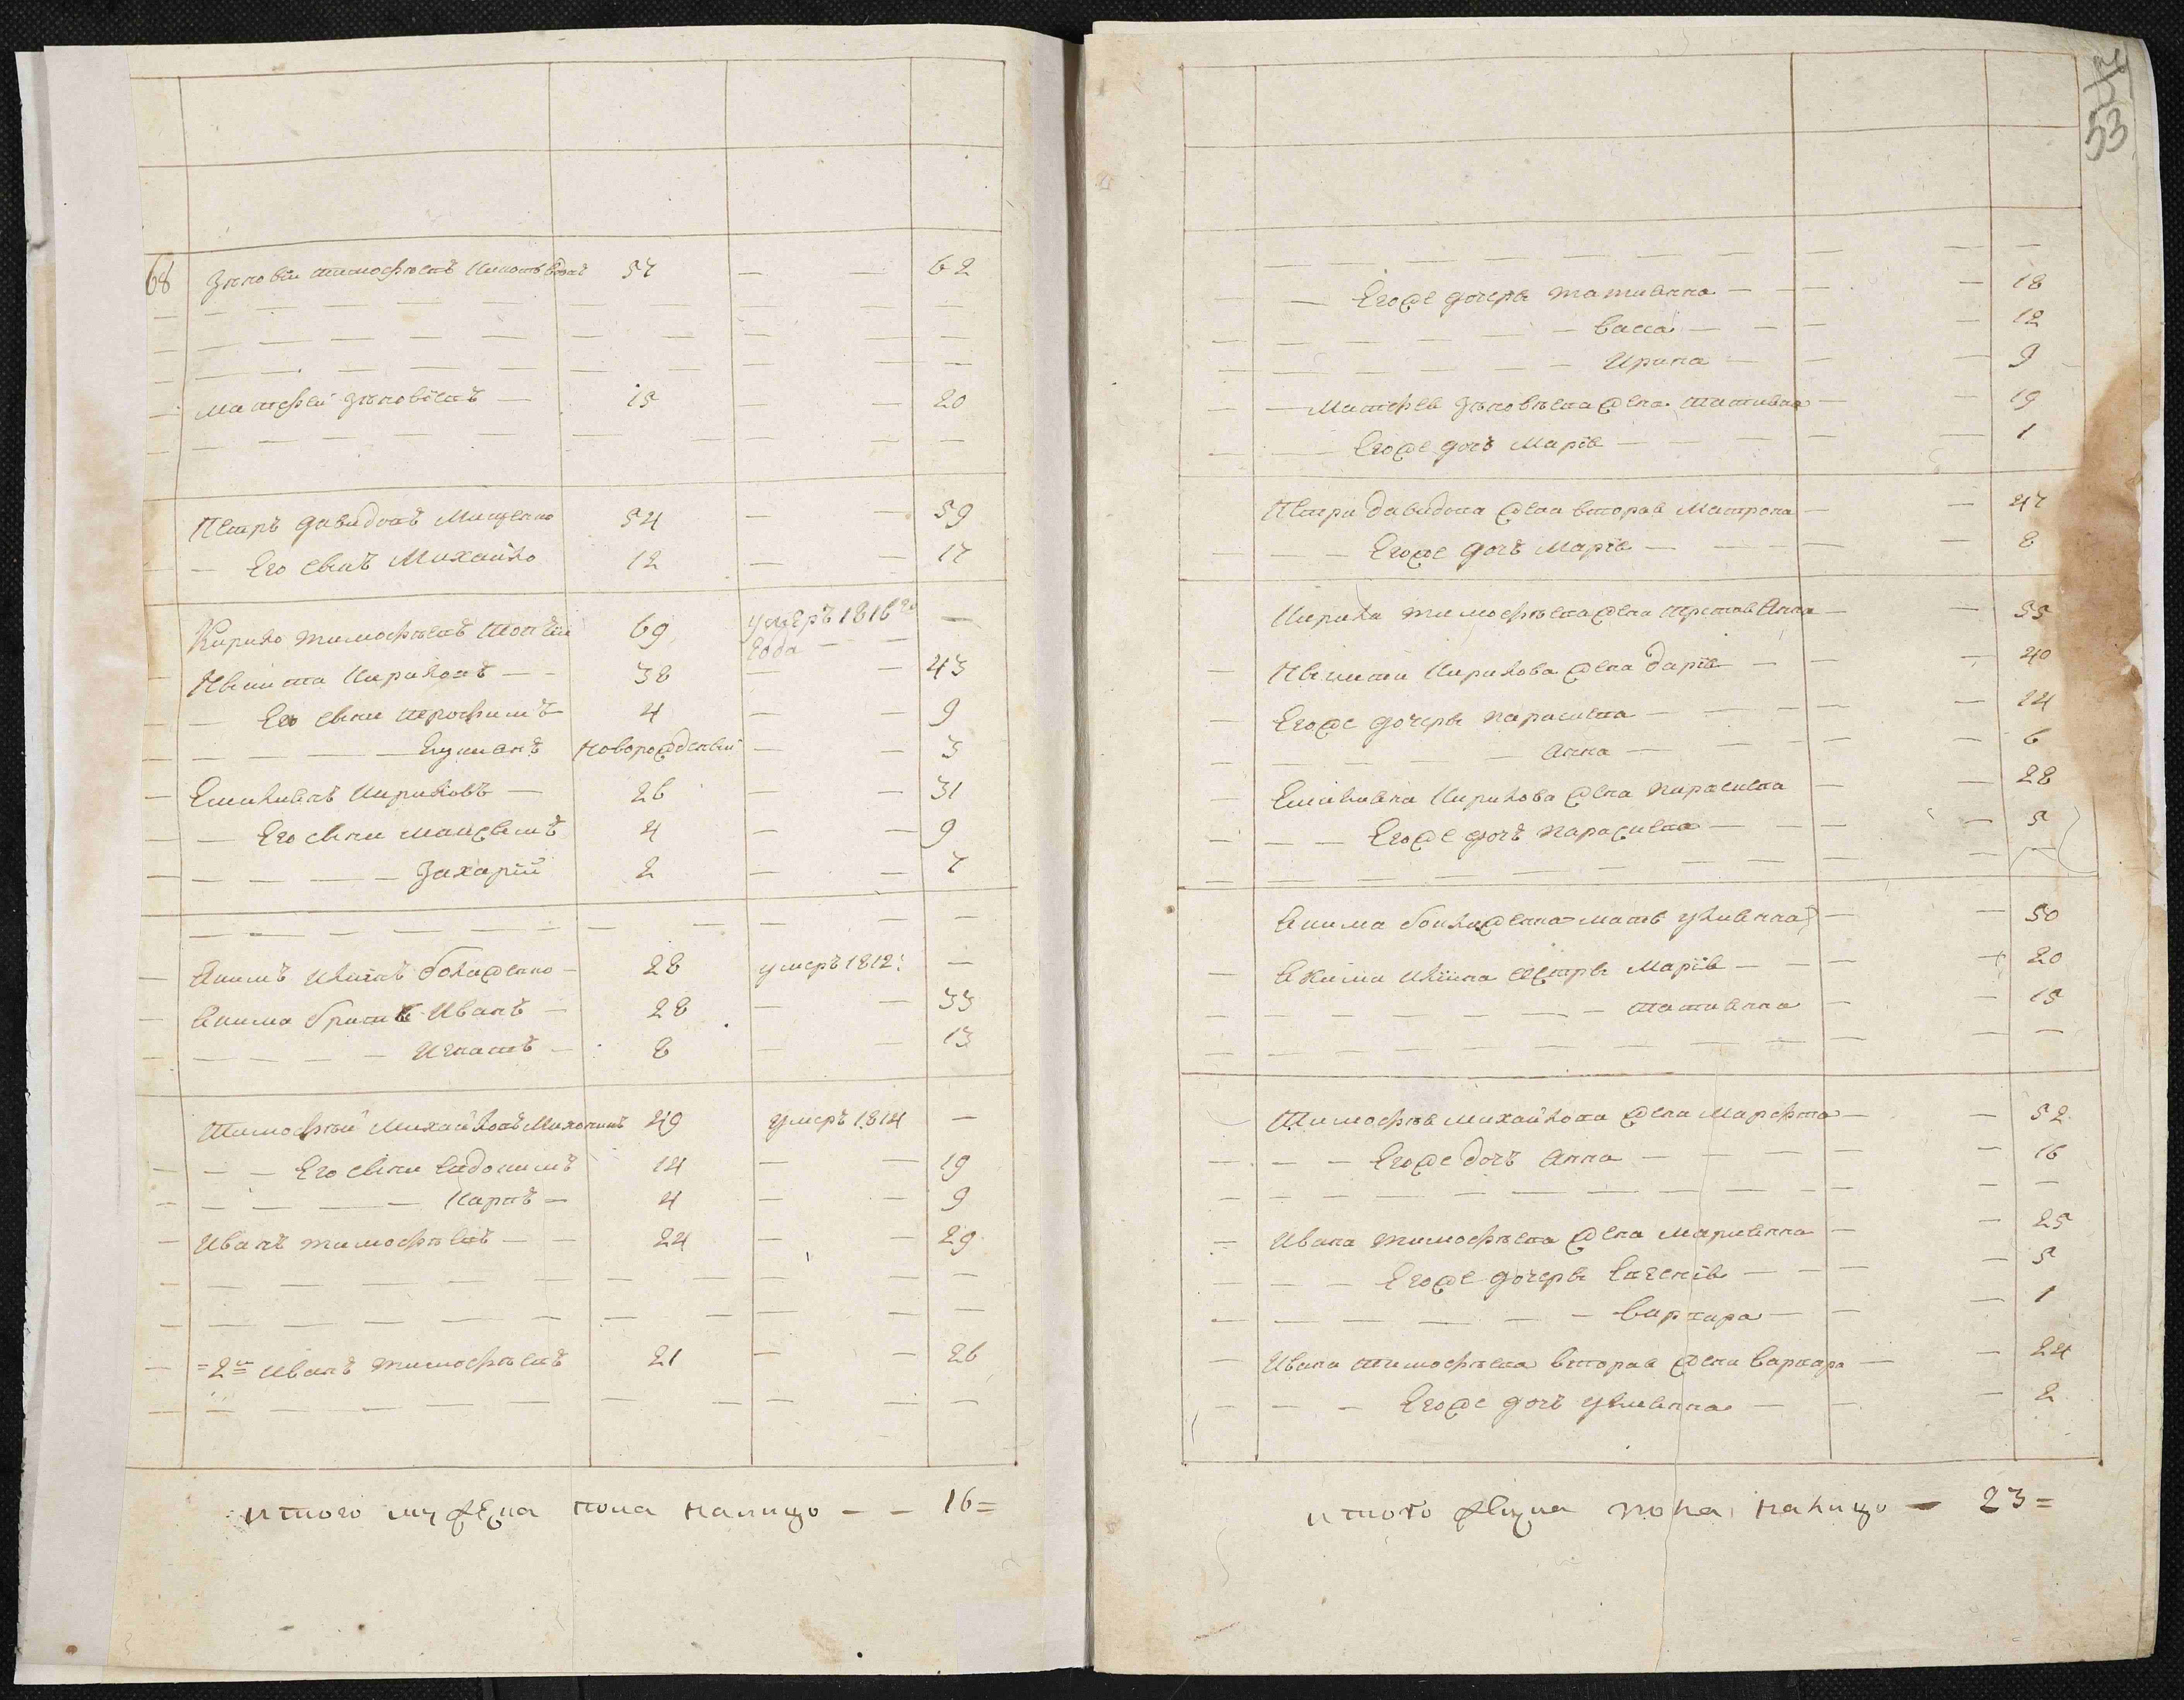 68 Зѣновiй тимофѣевъ 57 — — 62
матфей зѣновiевъ — 15 — — 20
Петръ давидовъ Мищенко 54 — — 59
— Его сынъ Михайло 12 — — 17
Кирило тимофѣевъ 69 умеръ 1816го —
года —
Никита Кириловъ — — 38 — — 43
— Его сыны трофимъ 4 — — 9
новорожденый — — 3
Емилианъ Кириловъ — 26 — — 31
— Его сыны 4 — — 9
— Захарiй 2 — — 7
Якимъ Илiинъ 28 умеръ 1812: —
Якима братъя Иванъ — 28 — — 33
— Игнатъ — 8 — — 13
Тимофѣй Михайловъ 49 умеръ 1814 —
— — Его сыны Евдокимъ 14 — — 19
— Карпъ — 4 — — 9
Иванъ тимофѣевъ — — 24 — — 29
= 2й Иванъ тимофѣевъ 21 — — 26
итого мужеска пола налицо — — 16 =
53
— Егоже дочеры татиянна — — 18
— васса — — 12
— Ирина — — 9
— Матфея Зѣновѣева жена татияна — — 19
— Егоже дочъ Марiя — — 1
Петра давидова жена вторая Матрона — — 47
— — Егоже дочъ марiя — — 8
Кирила тимофѣева жена третая Анна — — 55
— Никити Кирилова жена дарiя — — 40
— Егоже дочеры параскева — — 14
— анна — — 6
— Емилияна Кирилова жена параскева — — 28
— — Егоже дочъ параскева — — 5
Якима мать улиянна — — 50
— Якима илiина сестры Марiя — — 20
— татиянна — — 15
Тимофѣя михайлова жена марфта — — 52
— — Егоже дочъ анна — — 16
— Ивана тимофѣева жена мариянна — — 25
— — Егоже дочеры Евгенiя — — 5
— варвара — — 1
— Ивана тимофѣева втораго жена варвара — — 24
— — Егоже дочъ улиянна — — 2
итого женска пола налицо — 23 =